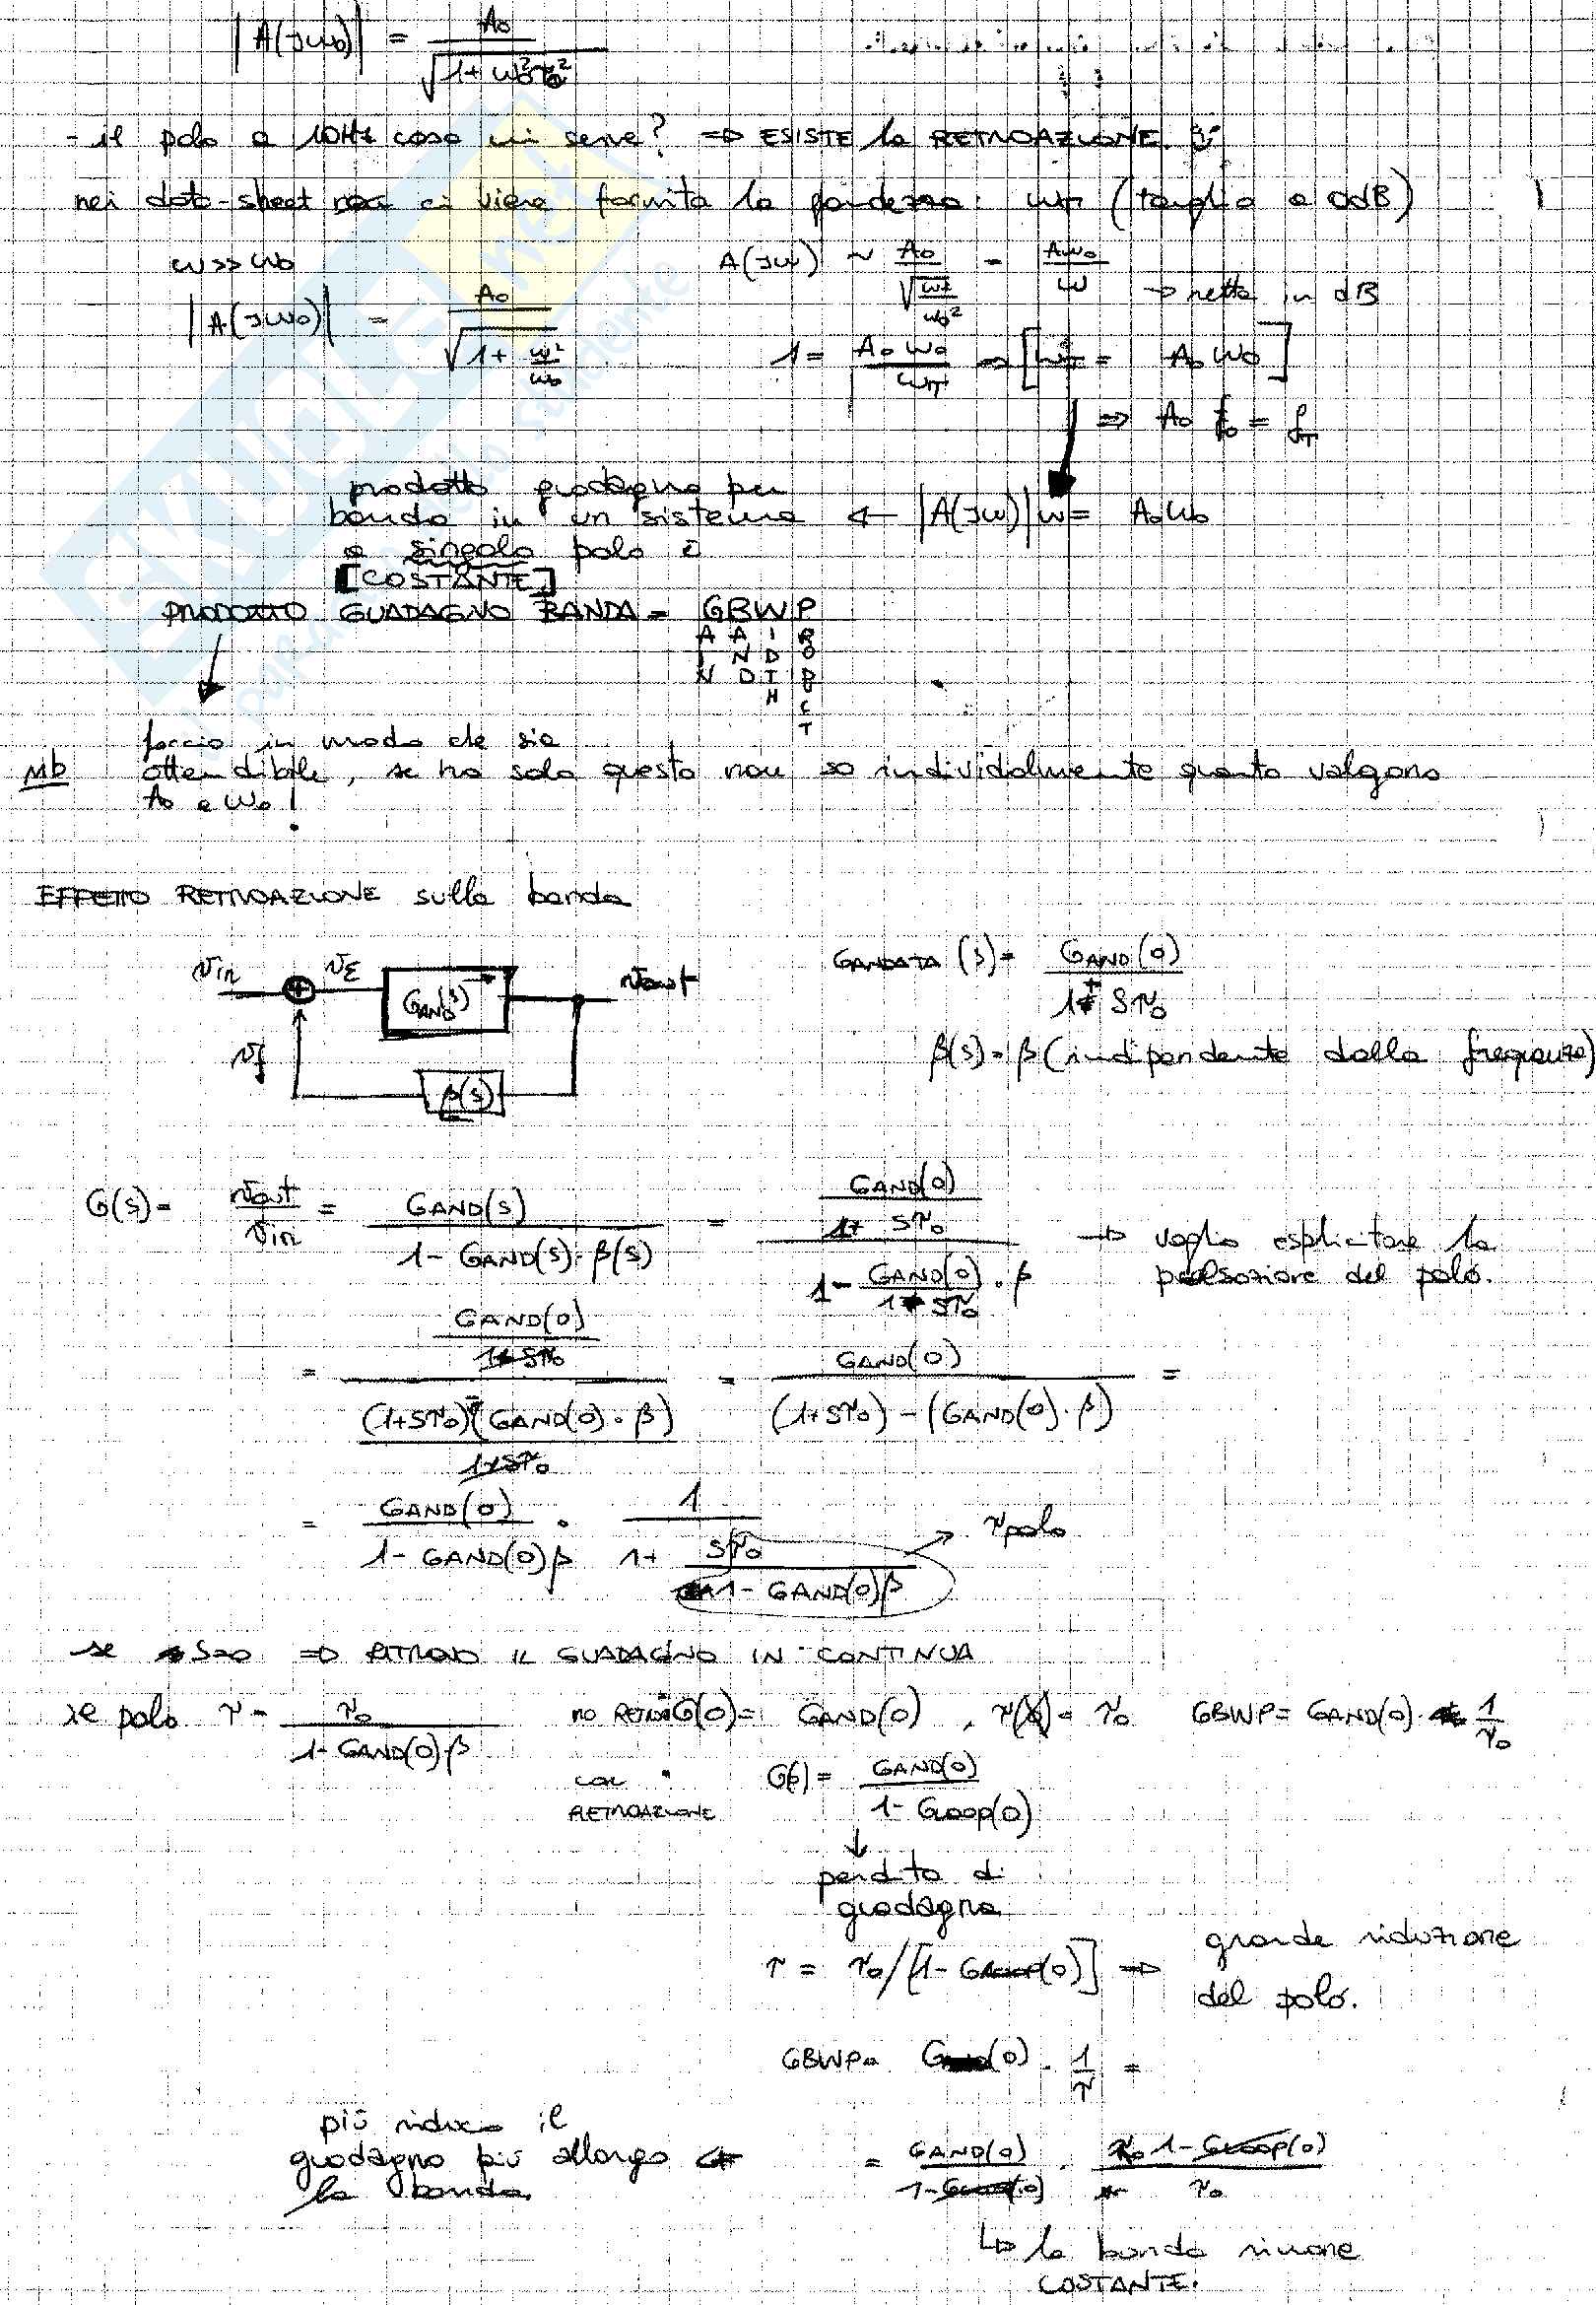 |A(jω₀)| = A₀ / √(1 + ω₀²τ₀²)
- il polo a 10Hz cosa mi serve? ⇒ ESISTE la RETROAZIONE
nei data-sheet ci viene fornita la grandezza: ωT (taglio a 0dB)
ω >> ω₀
A(jω) ~ A₀ / √(ω²/ω₀²) = A₀ω₀ / ω → retta in dB
|A(jω₀)| = A₀ / √(1 + ω²/ω₀)
1 = A₀ ω₀ / ωT ⇒ [ωT = A₀ ω₀]
⇒ A₀ f₀ = fT
prodotto guadagno per
banda in un sistema ← |A(jω)| ω = A₀ω₀
a singolo polo è
[COSTANTE]
PRODOTTO GUADAGNO BANDA = GBWP
GAIN BAND WIDTH PRODUCT
faccio in modo che sia
Nb ottendibile, se ho solo questo non so individalmente quanto valgono
A₀ e ω₀!
EFFETTO RETROAZIONE sulla banda
Vin + Vε GAND(s) Vout
Vf β(s)
GANDATA (s) = GAND(0) / (1 + sτ₀)
β(s) = β (indipendente dalla frequenza)
G(s) = Vout / Vin = GAND(s) / (1 - GAND(s) · β(s)) = (GAND(0) / (1 + sτ₀)) / (1 - GAND(0) / (1 + sτ₀) · β) → voglio esplicitare la
pulsazione del polo.
= (GAND(0) / (1 + sτ₀)) / (((1+sτ₀) - (GAND(0) · β)) / (1+sτ₀)) = GAND(0) / ((1+sτ₀) - (GAND(0) · β)) =
= GAND(0) / (1 - GAND(0)β) · 1 / (1 + sτ₀ / (1 - GAND(0)β)) → τpolo
se s=0 ⇒ RITROVO IL GUADAGNO IN CONTINUA
se polo τ = τ₀ / (1 - GAND(0)·β)
no RETRO G(0) = GAND(0), τ = τ₀ GBWP = GAND(0) · 1/τ₀
con RETROAZIONE
= GAND(0) / (1 - Gloop(0))
↓
perdita di
guadagno
τ = τ₀/[1 - Gloop(0)] ⇒ grande riduzione
del polo.
GBWP = G(0) · 1/τ =
più riduco il
guadagno più allargo ⇐ = GAND(0) / (1 - Gloop(0)) · (1 - Gloop(0)) / τ₀
la banda.
↳ la banda rimane
COSTANTE.